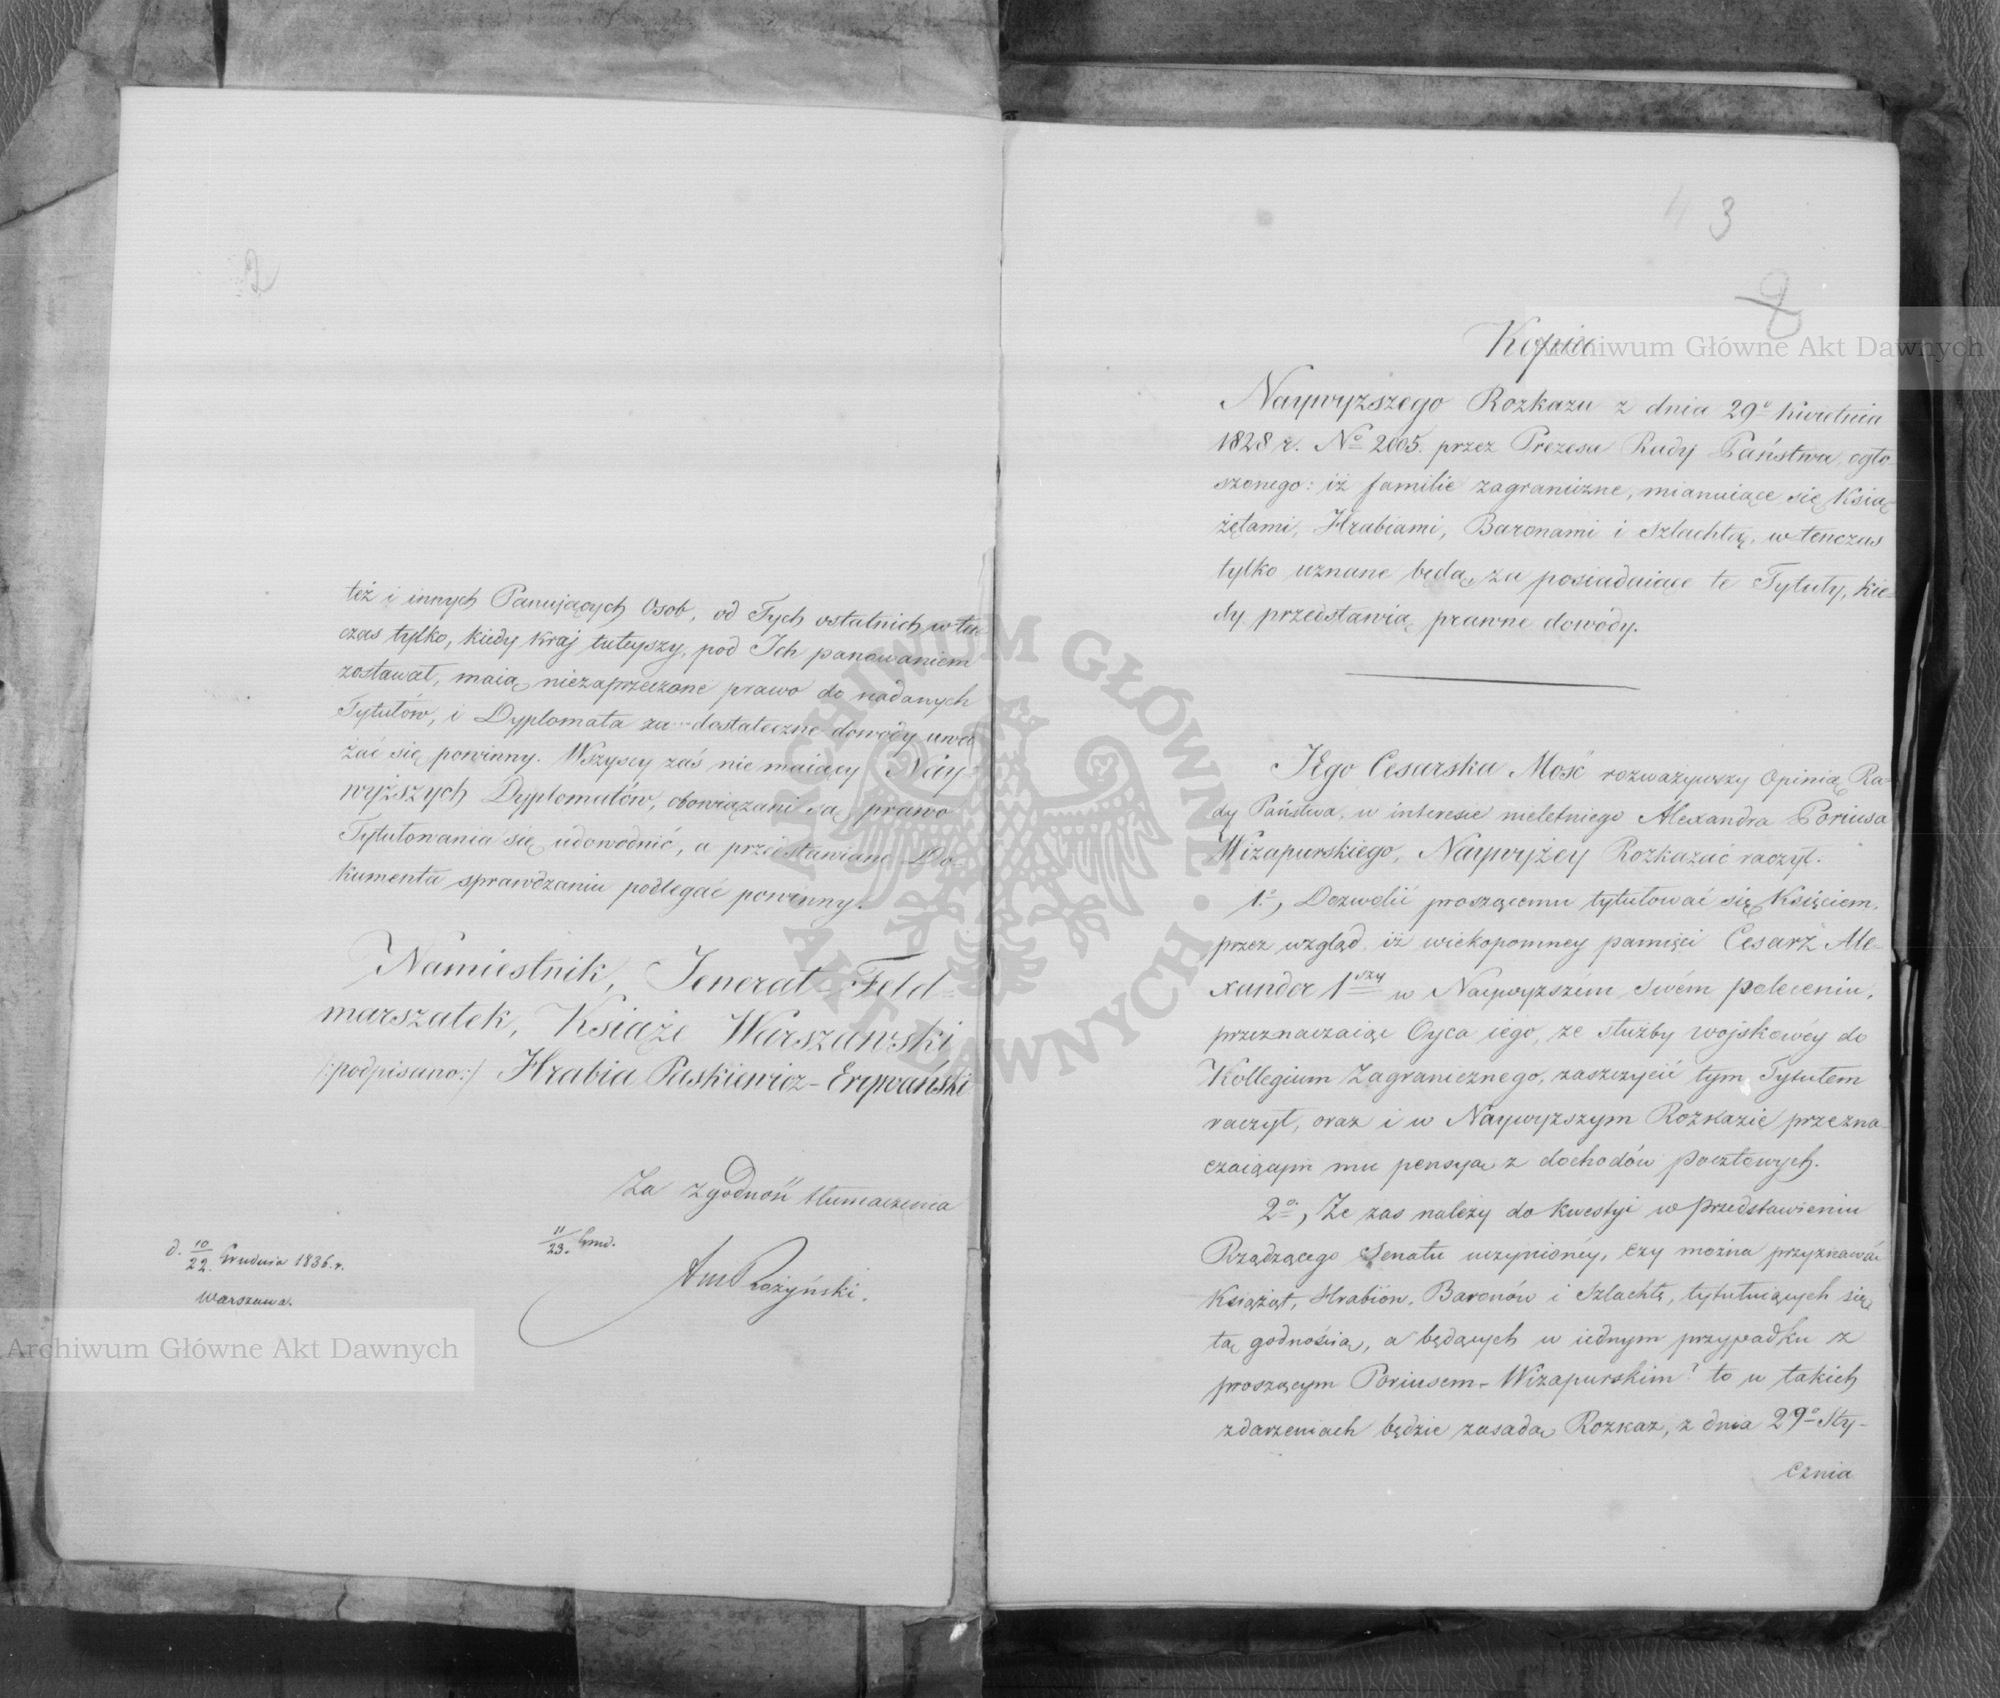 2
też i innych Panujących Osob, od Tych ostatnich w ten-
czas tylko, kiedy Kraj tuteyszy, pod Ich panowaniem
zostawał, maią niezaprzeczone prawo do nadanych
Tytułów, i Dyplomata za dostateczne dowody uwa
żać się powinny. Wszyscy zaś nie maiący Nay-
wyższych Dyplomatów, obowiązani są prawo
Tytułowania się udowodnić, a przedstawiane Do-
kumenta sprawdzaniu podlegać powinny.
Namiestnik, Jenerał-Feld-
marszałek, Książe Warszawski
/:podpisano:/ Hrabia Paskiewicz-Erywański
Za zgodność tłumaczenia
11/23. Grud.
Rożyński.
d. 10/22 Grudnia 1836.r.
Warszawa.
3
8
Kopia
Naywyższego Rozkazu z dnia 29º Kwietnia
1828 r. Nº 2005. przez Prezesa Rady Państwa, ogło-
szonego: iż familie zagraniczne, mianuiące się Ksią
żętami, Hrabiami, Baronami i Szlachtą, w tenczas
tylko uznane będą, za posiadaiące te Tytuły, kie-
dy przedstawią prawne dowody.
Jego Cesarska Mość rozważywszy Opinią Ra-
dy Państwa, w interesie nieletniego Alexandra Poriusa
Wizapurskiego, Naywyżey Rozkazać raczył.
1º, Dozwolić proszącemu tytułować się Księciem,
przez wzgląd, iż wiekopomney pamięci Cesarz Ale-
xander 1szy w Naywyższém Swém poleceniu,
przeznaczaiąc Oyca iego, ze służby wojskowéy do
Kollegium Zagranicznego, zaszczycić tym Tytułem
raczył, oraz i w Naywyższym Rozkazie przezna-
czaiącym mu pensyą z dochodów pocztowych.
2º, Ze zas należy do kwestyi w przedstawieniu
Rządzącego Senatu uczynionéy, czy można przyznawać
Książąt, Hrabiów, Baronów i Szlachtę, tytułuiących się
tą godnością, a będących w iednym przypadku z
proszącym Poriusem-Wizapurskim? to w takich
zdarzeniach będzie zasadą Rozkaz, z dnia 29º Sty-
cznia
Archiwum Główne Akt Dawnych
Archiwum Główne Akt Dawnych
ARCHIWUM GŁÓWNE · AKT DAWNYCH ·